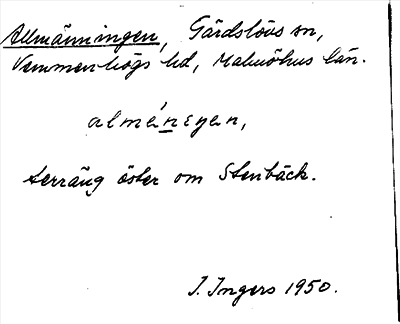 Allmänningen, Gärdslövs sn,
Vemmenhögs hd, Malmöhus län.
alméneŋen,
terräng öster om Stenbäck.
I. Ingers 1950.